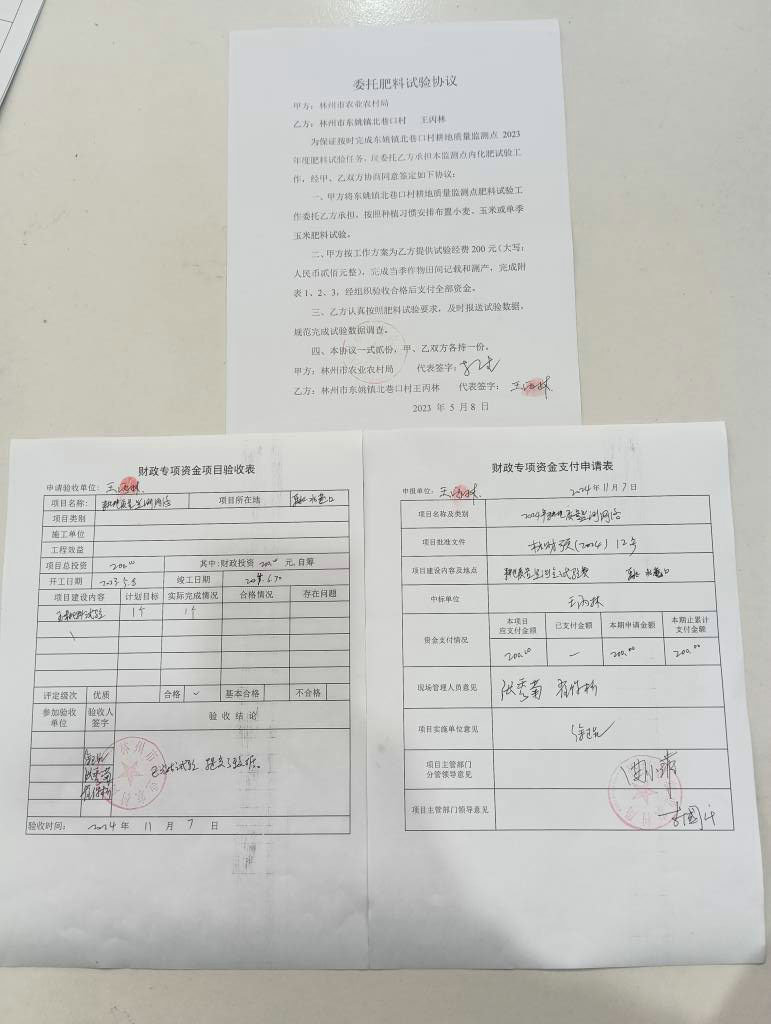 委托肥料试验协议
甲方：林州市农业农村局
乙方：林州市东姚镇北巷口村 王丙林
为保证按时完成东姚镇北巷口村耕地质量监测点 2023
年度肥料试验任务，现委托乙方承担本监测点内化肥试验工
作，经甲、乙双方协商同意签定如下协议：
一、甲方将东姚镇北巷口村耕地质量监测点肥料试验工
作委托乙方承担，按照种植习惯安排布置小麦、玉米或单季
玉米肥料试验。
二、甲方按工作方案为乙方提供试验经费 200 元（大写：
人民币贰佰元整），完成当季作物田间记载和测产，完成附
表 1、2、3，经组织验收合格后支付全部资金。
三、乙方认真按照肥料试验要求，及时报送试验数据，
规范完成试验数据调查。
四、本协议一式贰份，甲、乙双方各持一份。
甲方：林州市农业农村局 代表签字：
乙方：林州市东姚镇北巷口村王丙林 代表签字：王丙林
2023 年 5 月 8 日
财政专项资金项目验收表
申请验收单位：王丙林
项目名称： 耕地质量监测网络 项目所在地 北巷口
项目类别
施工单位
工程效益
项目总投资 200.00 其中：财政投资 200.00 元，自筹
开工日期 2023.5.8 竣工日期
项目建设内容 计划目标 实际完成情况 合格情况 存在问题
肥料试验 1个 1个
评定级次 优质 合格 ✓ 基本合格 不合格
参加验收单位 验收人签字 验收结论
张秀菊 已完成试验 提交了数据。
验收时间： 2024 年 11 月 7 日
财政专项资金支付申请表
申报单位：王丙林 2024 年 11 月 7 日
项目名称及类别 2024年耕地质量监测网络
项目批准文件 林财预(2024) 12号
项目建设内容及地点 耕地质量监测点试验费 北巷口
中标单位 王丙林
资金支付情况 本项目应支付金额 已支付金额 本期申请金额 本期止累计支付金额
200.00 — 200.00 200.00
现场管理人员意见 张秀菊
项目实施单位意见
项目主管部门分管领导意见
项目主管部门领导意见